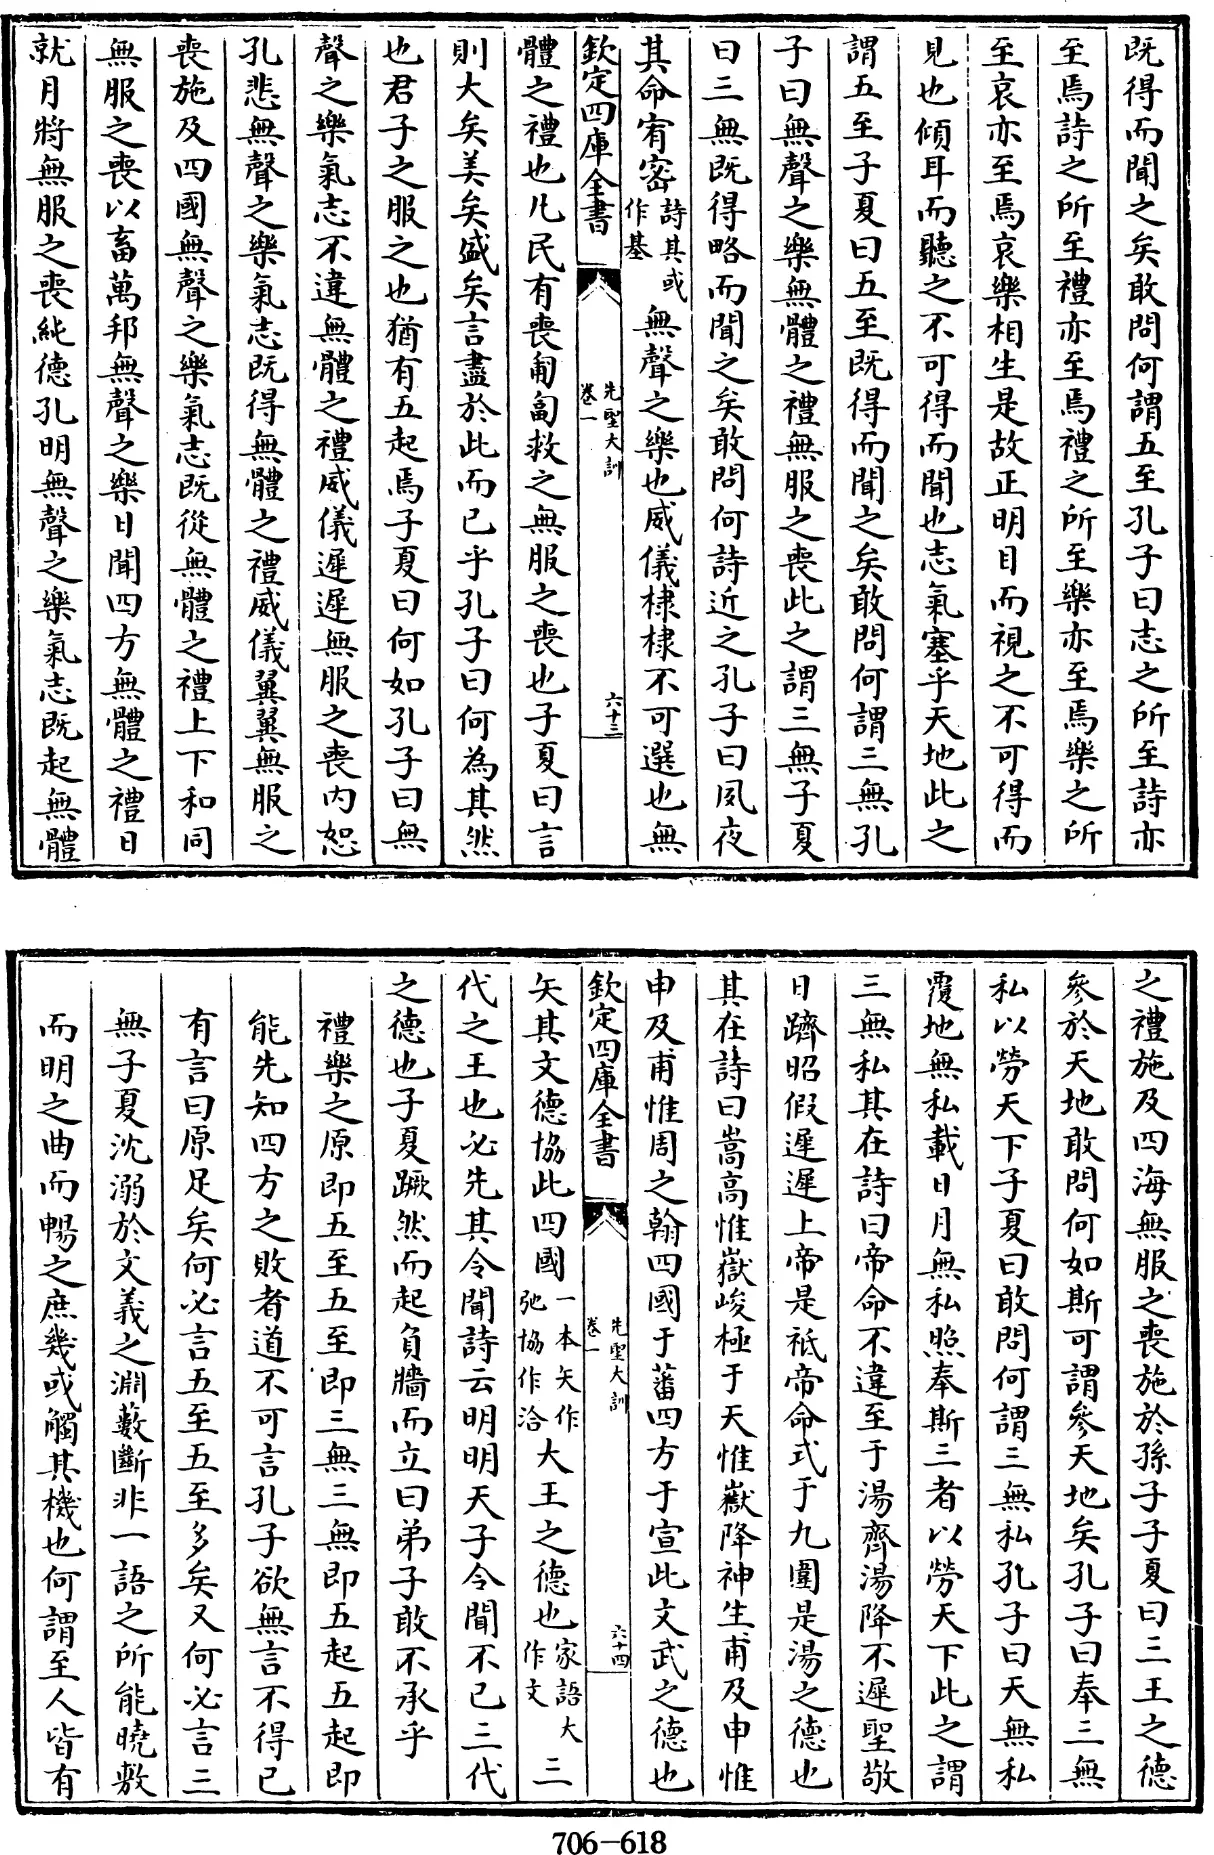 既得而聞之矣敢問何謂五至孔子曰志之所至詩亦
至焉詩之所至禮亦至焉禮之所至樂亦至焉樂之所
至哀亦至焉哀樂相生是故正明目而視之不可得而
見也傾耳而聽之不可得而聞也志氣塞乎天地此之
謂五至子夏曰五至既得而聞之矣敢問何謂三無孔
子曰無聲之樂無體之禮無服之喪此之謂三無子夏
曰三無既得略而聞之矣敢問何詩近之孔子曰夙夜
其命宥密詩其或作基無聲之樂也威儀棣棣不可選也無
欽定四庫全書 先聖大訓卷一 六十三
體之禮也凡民有喪匍匐救之無服之喪也子夏曰言
則大矣美矣盛矣言盡於此而已乎孔子曰何為其然
也君子之服之也猶有五起焉子夏曰何如孔子曰無
聲之樂氣志不違無體之禮威儀遲遲無服之喪内恕
孔悲無聲之樂氣志既得無體之禮威儀翼翼無服之
喪施及四國無聲之樂氣志既從無體之禮上下和同
無服之喪以畜萬邦無聲之樂日聞四方無體之禮日
就月將無服之喪純德孔明無聲之樂氣志既起無體
之禮施及四海無服之喪施於孫子子夏曰三王之德
參於天地敢問何如斯可謂參天地矣孔子曰奉三無
私以勞天下子夏曰敢問何謂三無私孔子曰天無私
覆地無私載日月無私照奉斯三者以勞天下此之謂
三無私其在詩曰帝命不違至于湯齊湯降不遲聖敬
日躋昭假遲遲上帝是祗帝命式于九圍是湯之德也
其在詩曰嵩高惟嶽峻極于天惟嶽降神生甫及申惟
申及甫惟周之翰四國于蕃四方于宣此文武之德也
欽定四庫全書 先聖大訓卷一 六十四
矢其文德協此四國一本矢作弛協作洽大王之德也家語大作文三
代之王也必先其令聞詩云明明天子令聞不已三代
之德也子夏蹶然而起負牆而立曰弟子敢不承乎
禮樂之原即五至五至即三無三無即五起五起即
能先知四方之敗者道不可言孔子欲無言不得已
有言曰原足矣何必言五至五至多矣又何必言三
無子夏沈溺於文義之淵藪斷非一語之所能曉敷
而明之曲而暢之庶幾或觸其機也何謂至人皆有
706-618